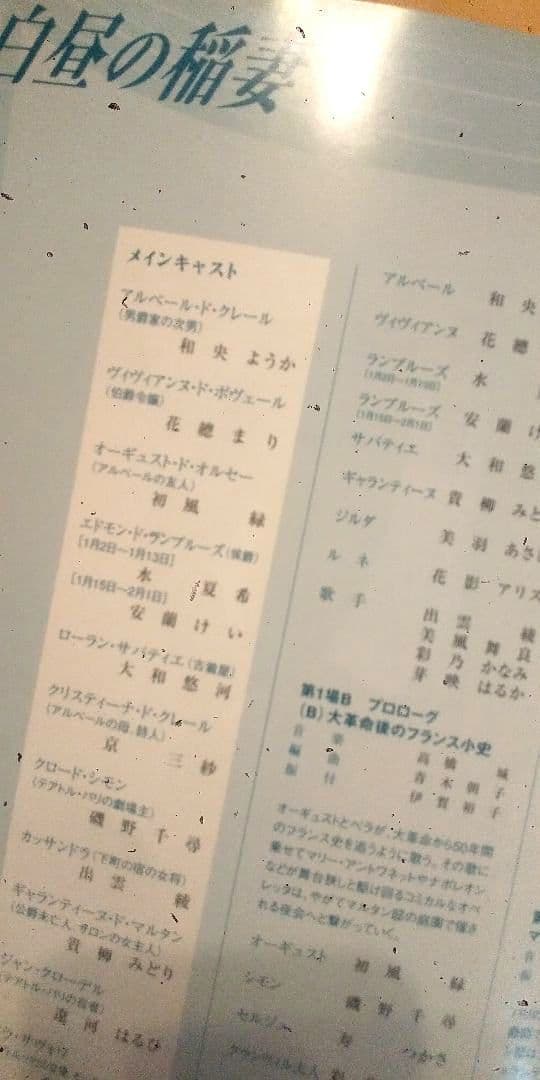 白昼の稲妻
メインキャスト
アルベール・ド・クレール
(男爵家の次男)
和央ようか
ヴィヴィアンヌ・ド・ボヴェール
(伯爵令嬢)
花總まり
オーギュスト・ド・オルセー
(アルベールの友人)
初風 緑
エドモン・ド・ランブルーズ(侯爵)
[1月2日〜1月13日]
水 夏希
[1月15日〜2月1日]
安蘭けい
ローラン・サバティエ(古着屋)
大和悠河
クリスティーナ・ド・クレール
(アルベールの母、詩人)
京 三紗
クロード・シモン
(テアトル・パリの劇場主)
磯野千尋
カッサンドラ(下町の宿の女将)
出雲 綾
ギャランティーヌ・ド・マルタン
(公爵未亡人、サロンの女主人)
貴柳みどり
ジャン・クローデル
(テアトル・パリの役者)
遼河はるひ
アルベール 和央
ヴィヴィアンヌ 花總
ランブルーズ 水
(1月2日〜1月13日)
ランブルーズ 安蘭け
(1月15日〜2月1日)
サバティエ 大和悠
ギャランティーヌ 貴柳みど
ジルダ 美羽あさ
ルネ 花影アリス
歌手 出雲 綾
美風舞良
彩乃かなみ
芽映はるか
第1場B プロローグ
(B)大革命後のフランス小史
音楽 高橋 城
編曲 青木朝子
振付 伊賀裕子
オーギュストとベラが、大革命から50年間
のフランス史を追うように歌う。その歌に
乗せてマリー・アントワネットやナポレオン
などが舞台狭しと駆け回るコミカルなオペ
レッタは、やがてマルタン邸の庭園で催さ
れる夜会へと繋がっていく。
オーギュスト 初風 緑
シモン 磯野千尋
セルジュ
タウンゼル夫人